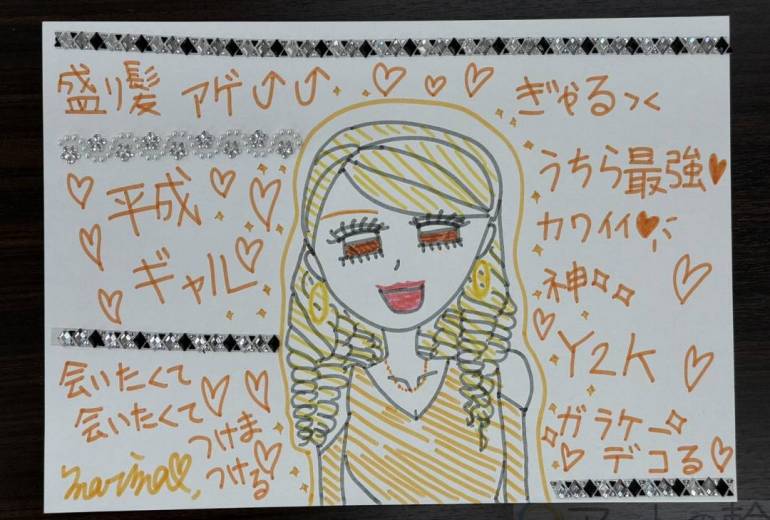 盛り髪 アゲ⤴⤴
平成
ギャル
会いたくて
会いたくて
つけま
つける
marina
ぎゃるっく
うちら最強
カワイイ
神
Y2K
ガラケー
デコる